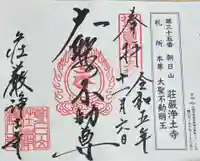 第三十五番 朝日山 荘厳浄土寺
札所本尊 大聖不動明王
奉拝
令和五年
十一月六日
大聖不動尊
荘厳浄土寺